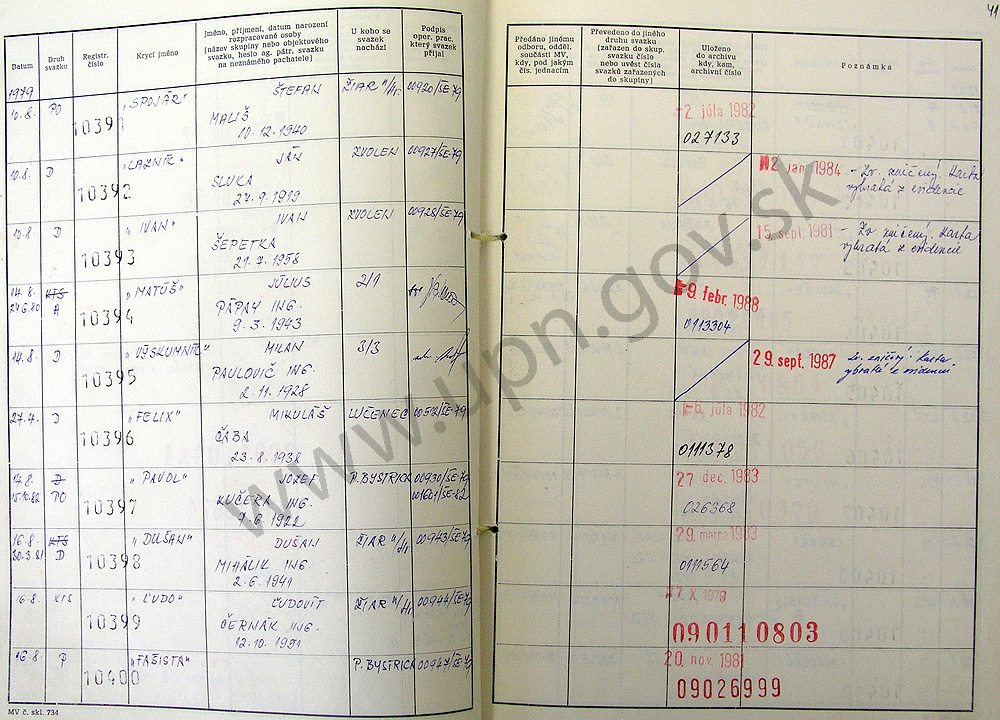 41
Datum
Druh
svazku
Registr.
číslo
Krycí jméno
Jméno, příjmení, datum narození
rozpracované osoby
(název skupiny nebo objektového
svazku, heslo ag. pátr. svazku
na neznámého pachatele)
U koho se
svazek
nachází
Podpis
oper. prac.
který svazek
přijal
Předáno jinému
odboru, odděl.
součásti MV,
kdy, pod jakým
čís. jednacím
Převedeno do jiného
druhu svazku
(zařazen do skup.
svazku číslo
nebo uvést čísla
svazků zařazených
do skupiny)
Uloženo
do archivu
kdy, kam,
archivní číslo
Poznámka
1979
10.8. PO 10391 "SPOJÁR" ŠTEFAN ŽIAR n/Hr. 00920/SE-79 2. júla 1982
MALIŠ 027133
10.12.1940
10.8. D 10392 "LAZNÍK" JÁN ZVOLEN 00927/SE-79 2. jan. 1984 - Zv. zničený. Karta
SLUKA vybratá z evidencie
27.9.1919
10.8. D 10393 "IVAN" IVAN ZVOLEN 00928/SE-79 15. sept. 1981 - Zv. zničený. Karta
ŠEPETKA vybratá z evidencie
21.7.1958
14.8. KTS 10394 "MATÚŠ" JÚLIUS 2/1 9. febr. 1988
24.6.80 A PÁPAY ING. 0113304
9.3.1943
14.8. D 10395 "VÝSKUMNÍK" MILAN 3/3 29. sept. 1987 Zv. zničený. Karta
PAULOVIČ ING. vybratá z evidencie
2.11.1928
27.7. D 10396 "FELIX" MIKULÁŠ LUČENEC 6. júla 1982
ČABA 0111378
23.8.1938
14.8. D 10397 "PAVOL" JOZEF P. BYSTRICA 00930/SE-79 27. dec. 1983
15.10.82 PO KUČERA ING. 001601/SE-82 026368
7.6.1922
16.8. KTS 10398 "DUŠAN" DUŠAN ŽIAR n/Hr. 00943/SE-79 29. marca 1983
30.3.81 D MIHÁLIK ING. 0111564
2.6.1941
16.8. KTS 10399 "ĽUDO" ĽUDOVÍT ŽIAR n/Hr. 00944/SE-79 X 1979
ČERNÁK ING. 090110803
12.10.1951
16.8 P 10400 "FAŠISTA" P. BYSTRICA 00947/SE-79 20. nov. 1981
09026999
MV č. skl. 734
www.upn.gov.sk